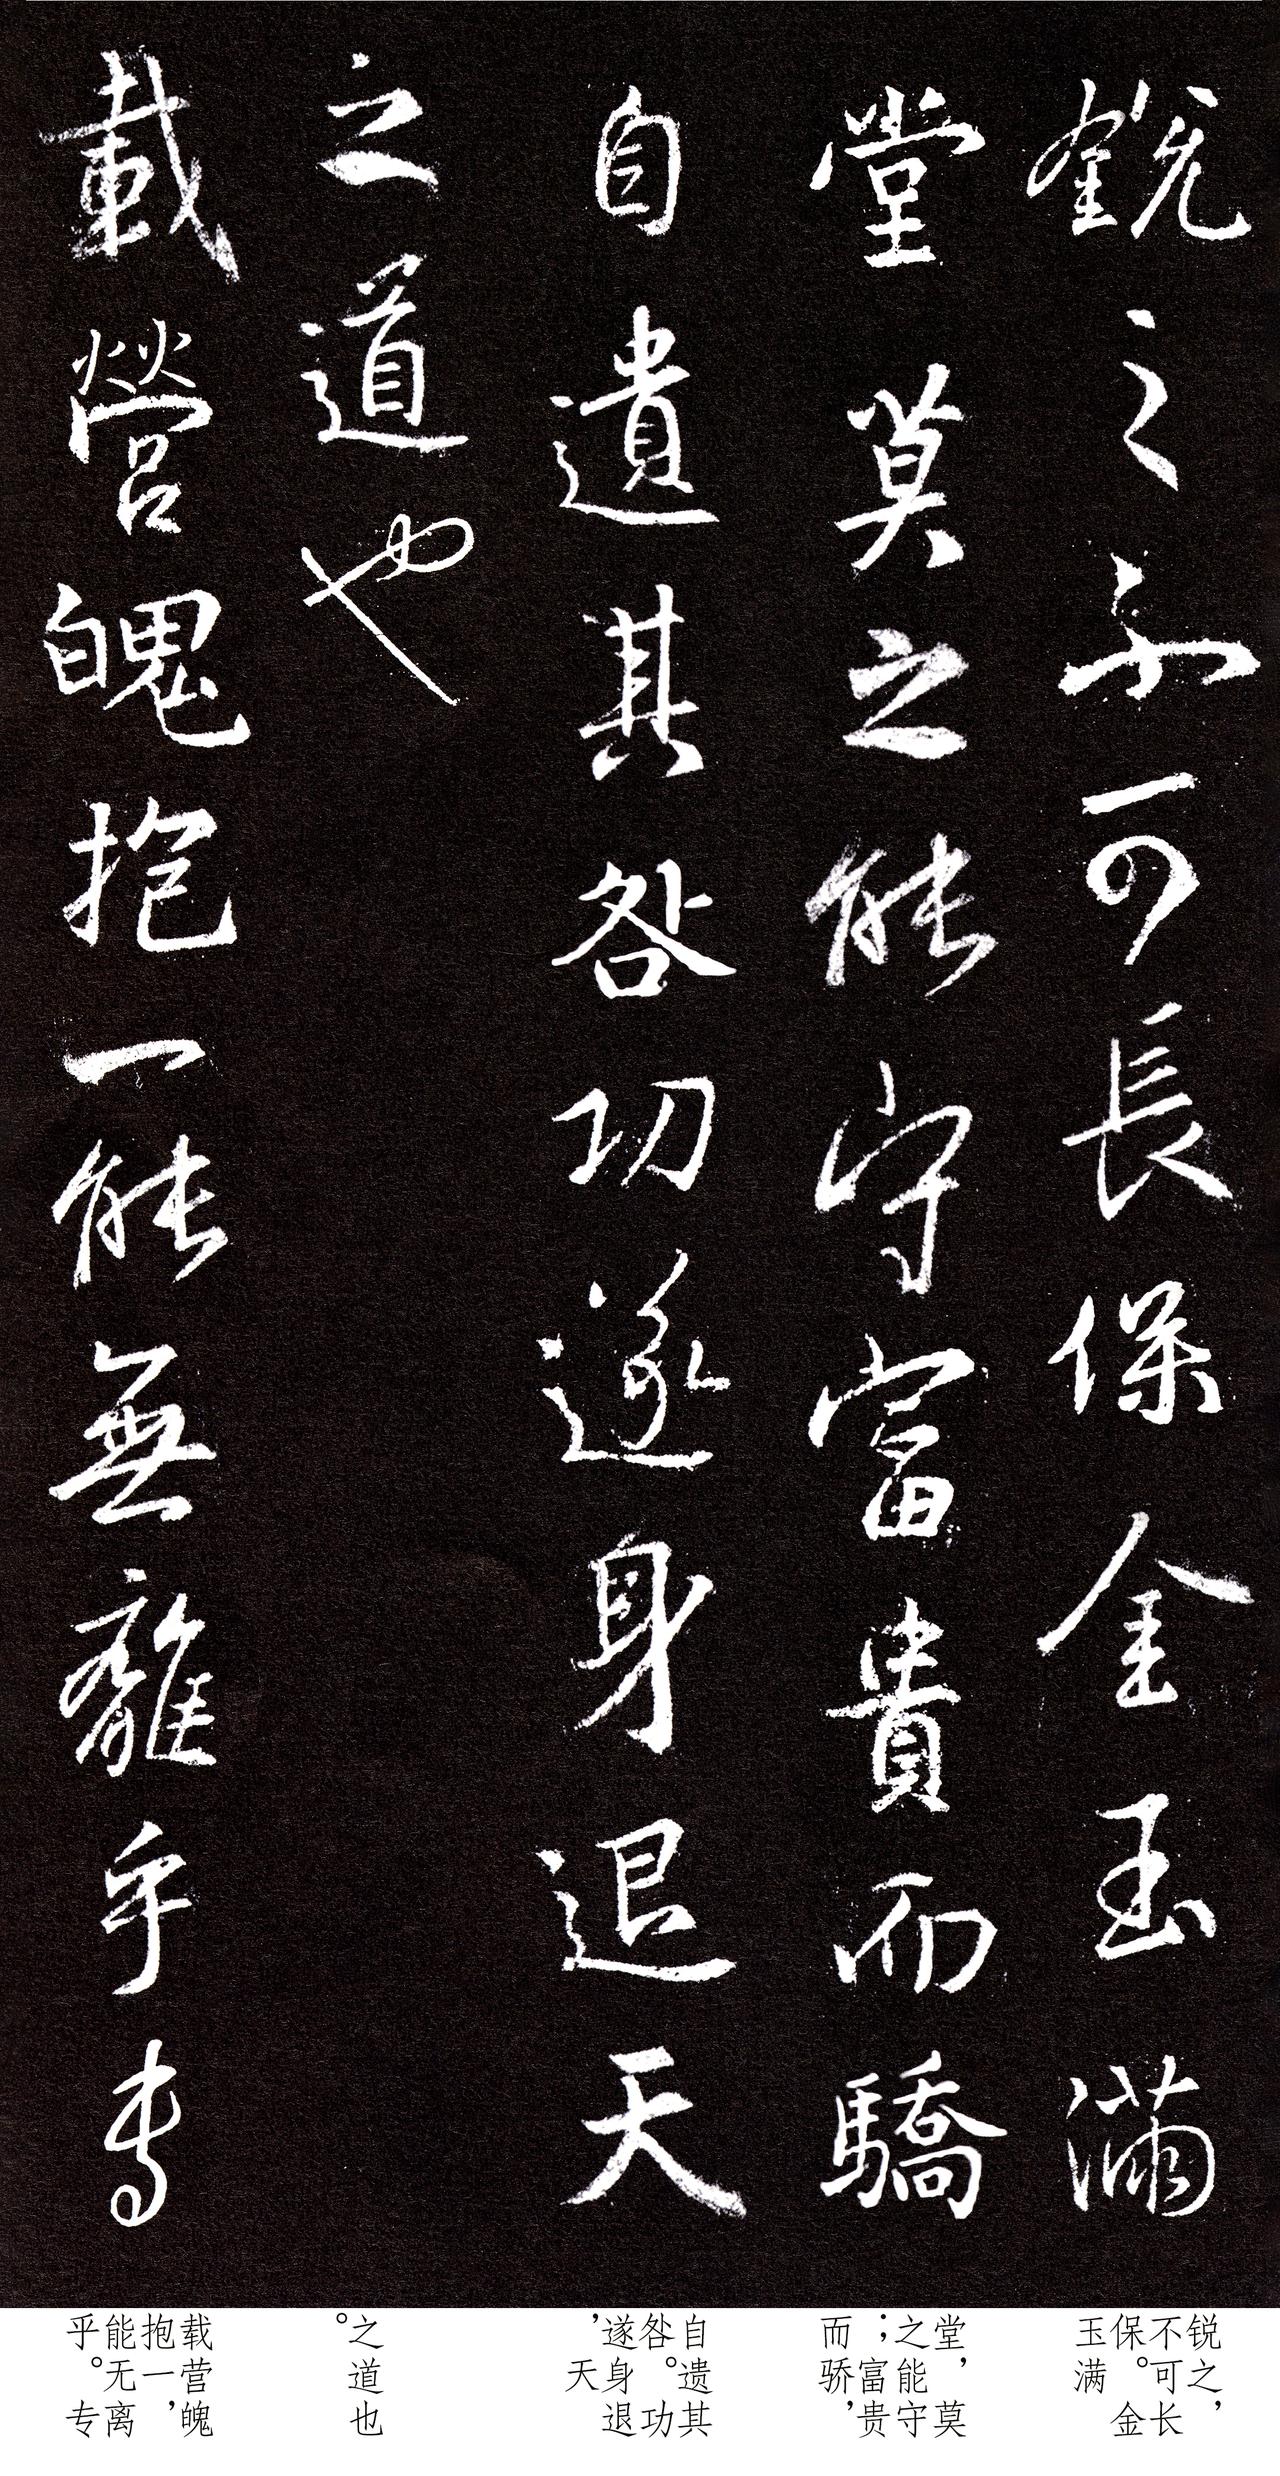 銳之不可長保金玉滿
堂莫之能守富貴而驕
自遺其咎功遂身退天
之道也
載營魄抱一能無離乎專
锐之，
不可长
保。金
玉满
堂，莫
之能守
；富贵
而骄，
自遗其
咎。功
遂身退
，天
之道也
。
载营魄
抱一，
能无离
乎。专